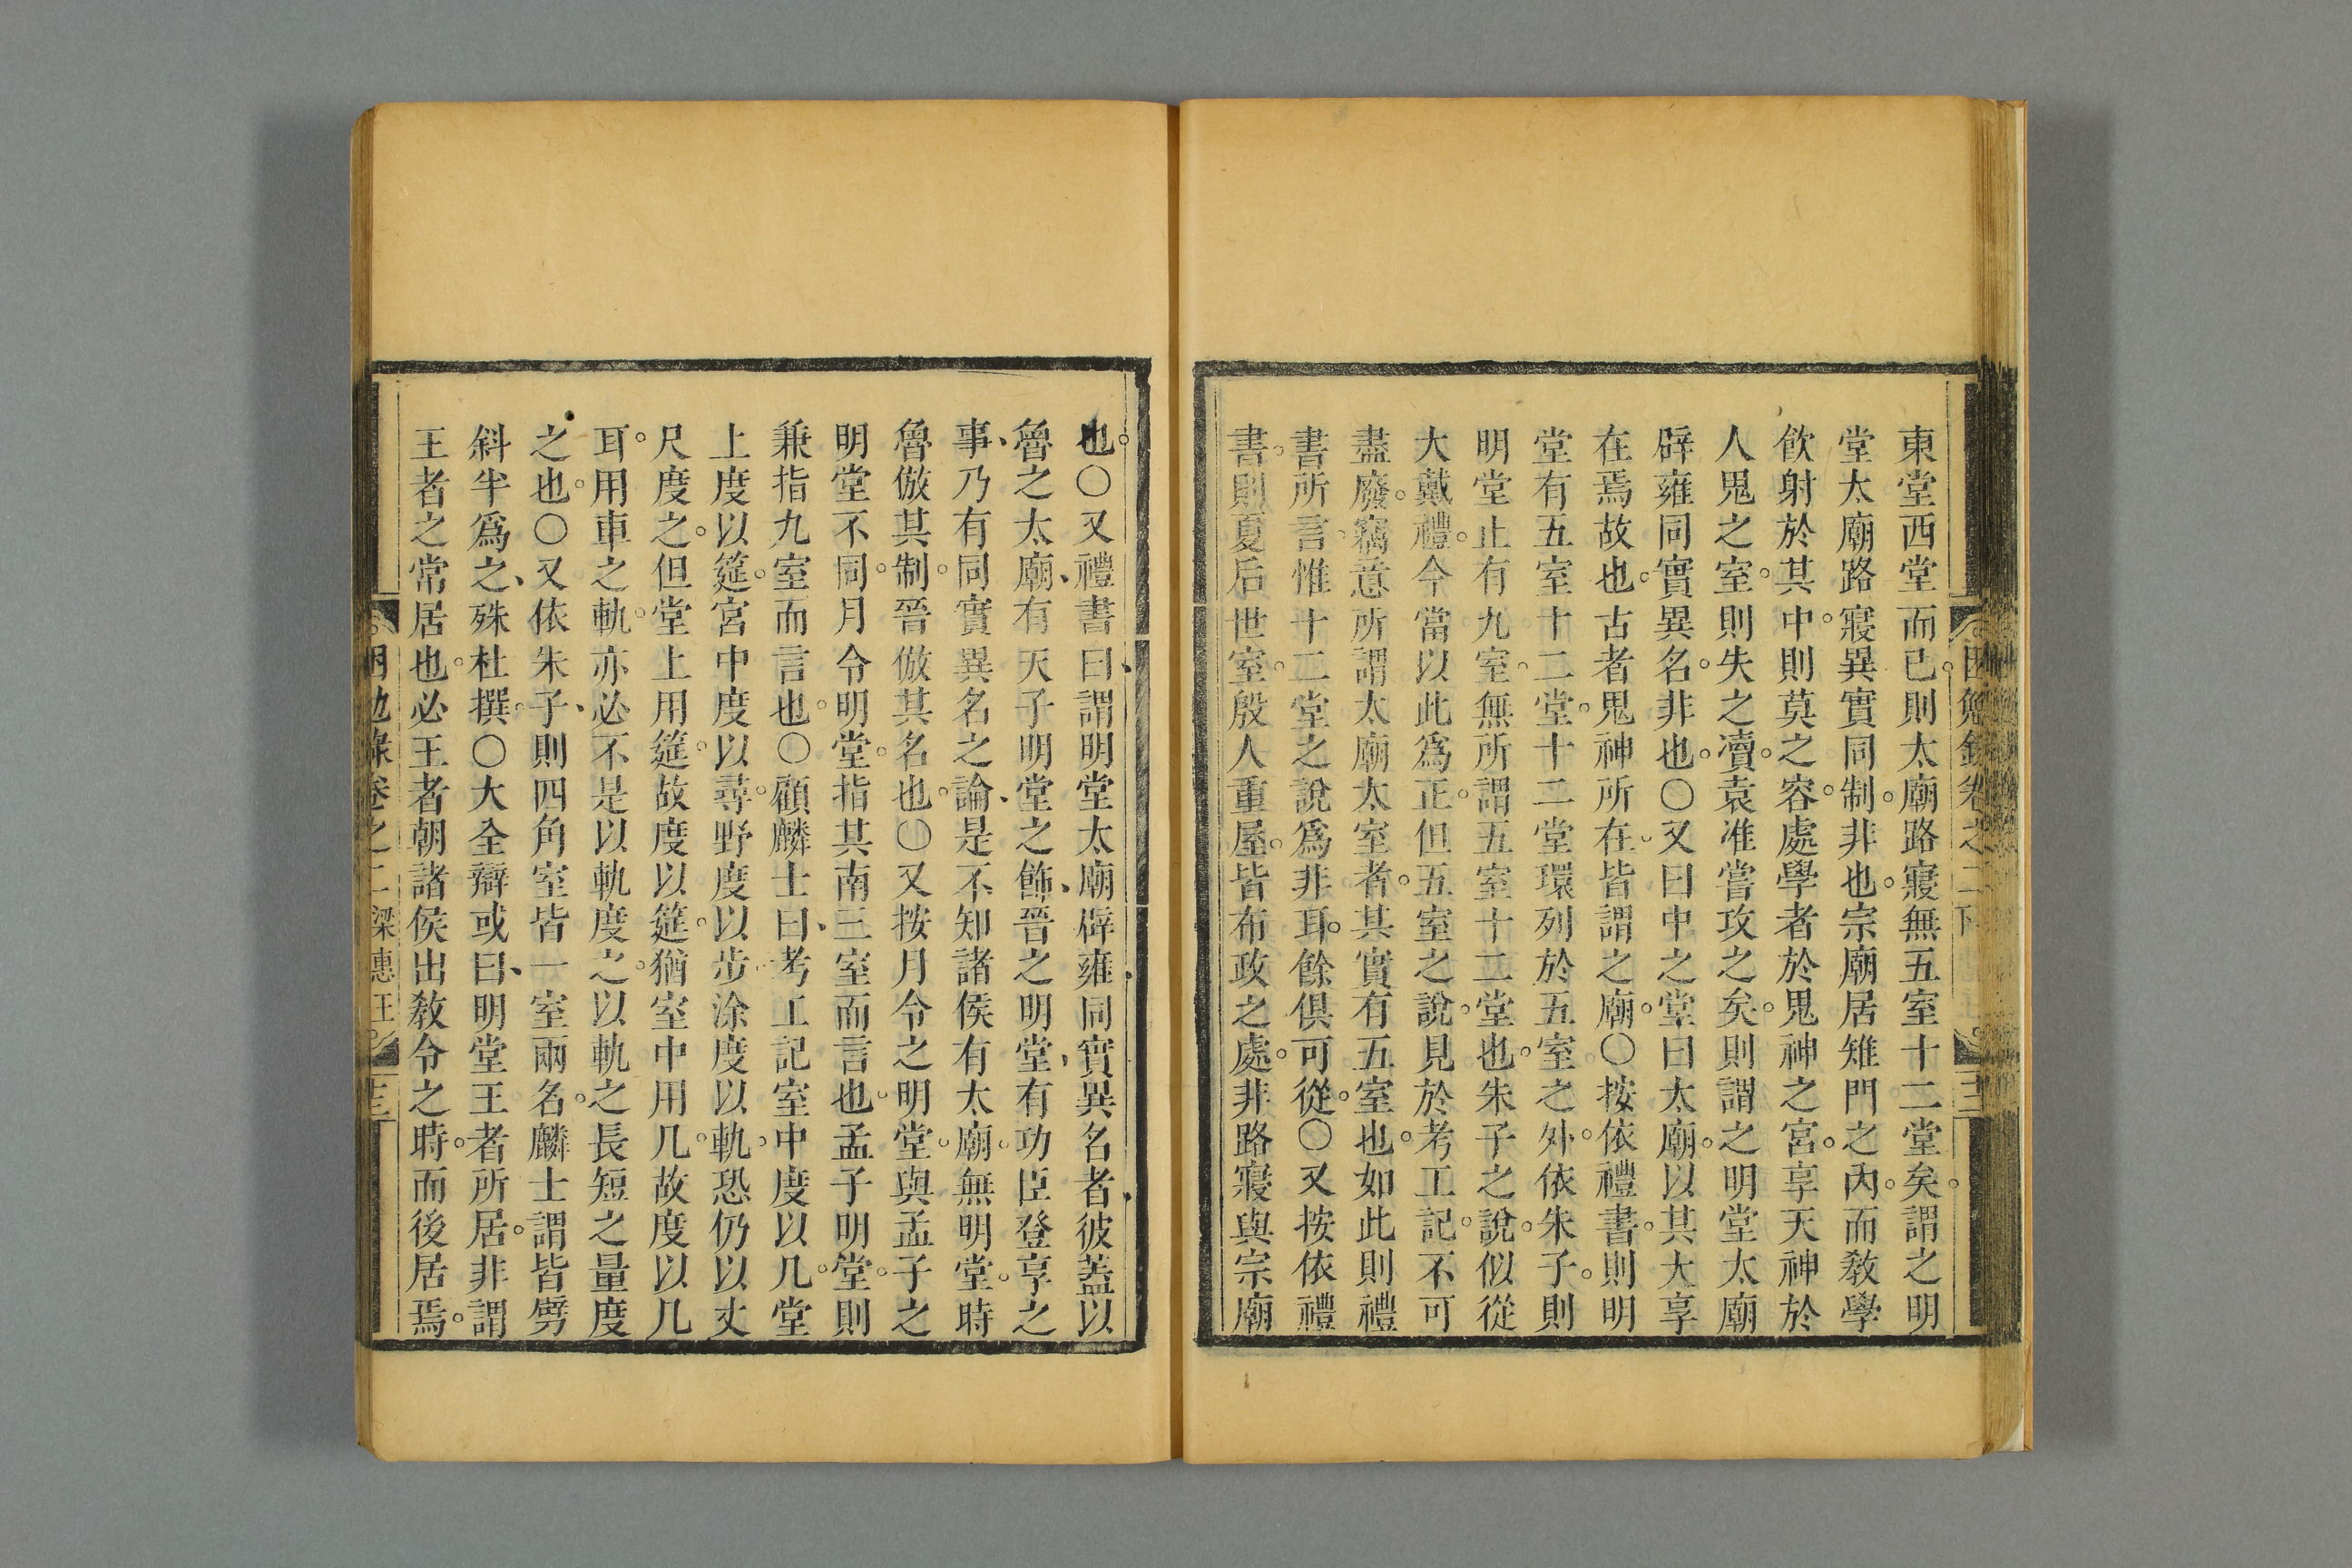 東堂西堂而已。則太廟路寢無五室十二堂矣。謂之明
堂太廟路寢異實同制。非也。宗廟居雉門之內。而敎學
飲射於其中。則莫之容。處學者於鬼神之宮。享天神於
人鬼之室。則失之瀆。袁准嘗攻之矣。則謂之明堂太廟
辟雍同實異名。非也。○又曰中之堂曰太廟。以其大享
在焉故也。古者鬼神所在。皆謂之廟。○按依禮書。則明
堂有五室十二堂。十二堂環列於五室之外。依朱子。則
明堂止有九室。無所謂五室十二堂也。朱子之說。似從
大戴禮。今當以此爲正。但五室之說。見於考工記。不可
盡廢。竊意所謂太廟太室者。其實有五室也。如此則禮
書所言。惟十二堂之說爲非耳。餘俱可從。○又按依禮
書。則夏后世室。殷人重屋。皆布政之處。非路寢與宗廟
也。○又禮書曰、謂明堂太廟辟雍、同實異名者、彼蓋以
魯之太廟、有天子明堂之飾、晉之明堂、有功臣登享之
事、乃有同實異名之論、是不知諸侯有太廟。無明堂。時
魯倣其制。晉倣其名也。○又按月令之明堂。與孟子之
明堂不同。月令明堂。指其南三室而言也。孟子明堂。則
兼指九室而言也。○顧麟士曰、考工記室中度以几。堂
上度以筵。宮中度以尋。野度以步。涂度以軌。恐仍以丈
尺度之。但堂上用筵。故度以筵。猶室中用几。故度以几
耳。用車之軌。亦必不是以軌度之。以軌之長短之量度
之也。○又依朱子、則四角室皆一室兩名。麟士謂皆劈
斜半爲之、殊杜撰。○大全辯或曰、明堂王者所居。非謂
王者之常居也。必王者朝諸侯出敎令之時。而後居焉。
困勉錄卷之二 梁惠王